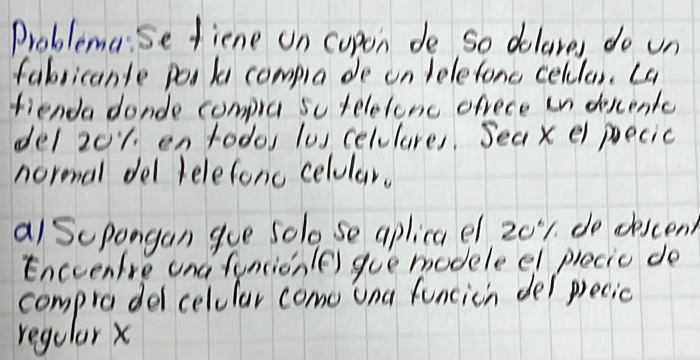 Problema: Se tiene un cupón de 50 dolares de un
fabricante por la compra de un telefono celular. La
tienda donde compra su telefono ofrece un descento
del 20% en todos los celulares. Sea x el precio
normal del telefono celular.
a) Supongan que solo se aplica el 20% de descent
Encuentre una función (f) que modele el precio de
compra del celular como una función del precio
regular x